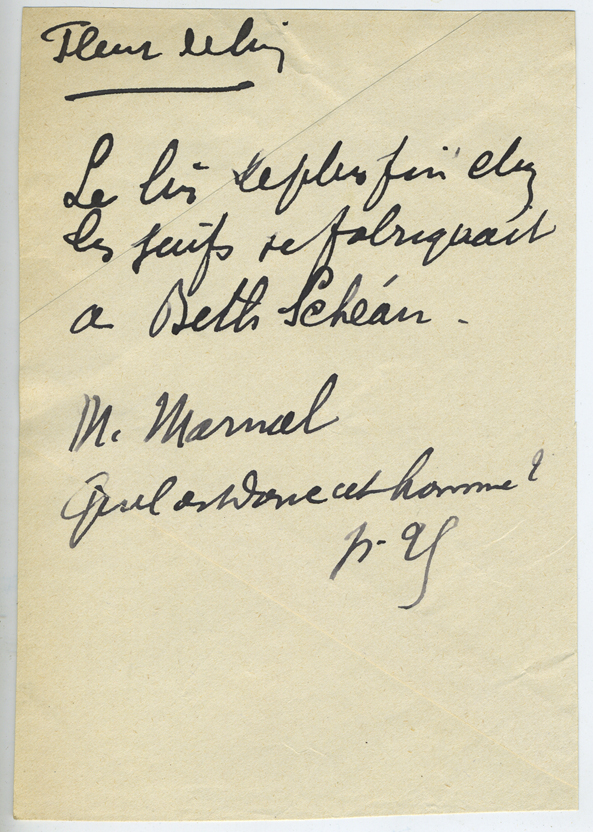 Fleur de lin
Le lin le plus fin chez
les juifs se fabriquait
a Beth Schéan.
M. Marnas
Quel est donc cet homme?
p.